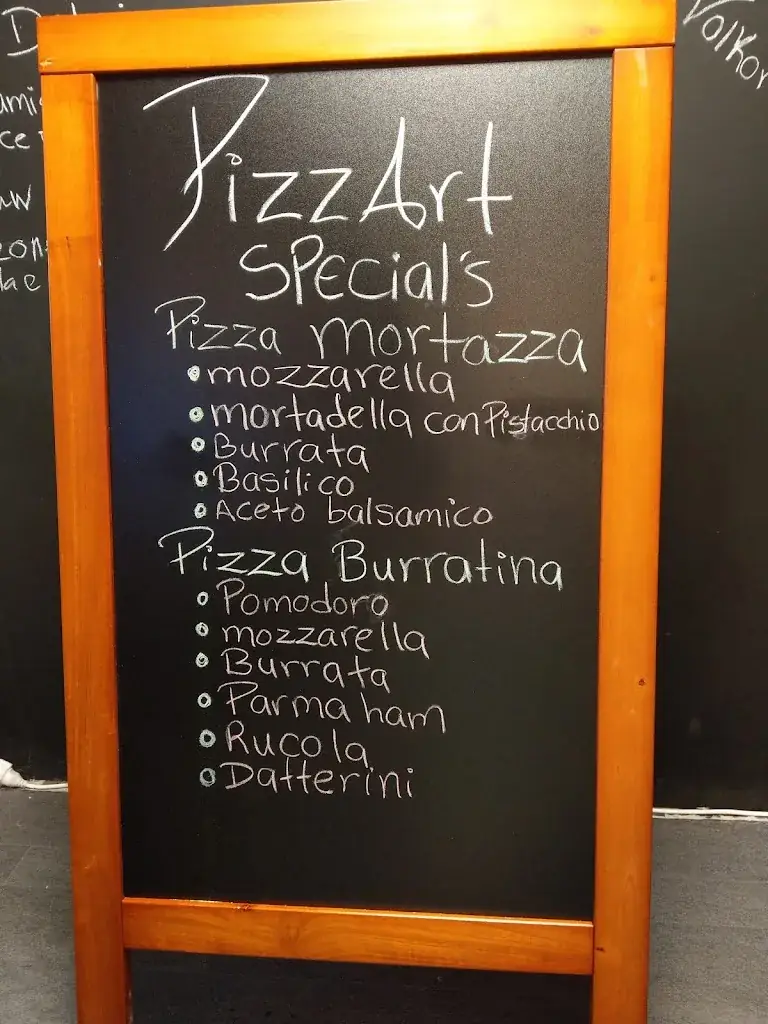 PizzArt
SPecial's
Pizza mortazza
mozzarella
mortadella con Pistacchio
Burrata
Basilico
Aceto balsamico
Pizza Burratina
Pomodoro
mozzarella
Burrata
Parma ham
Rucola
Datterini